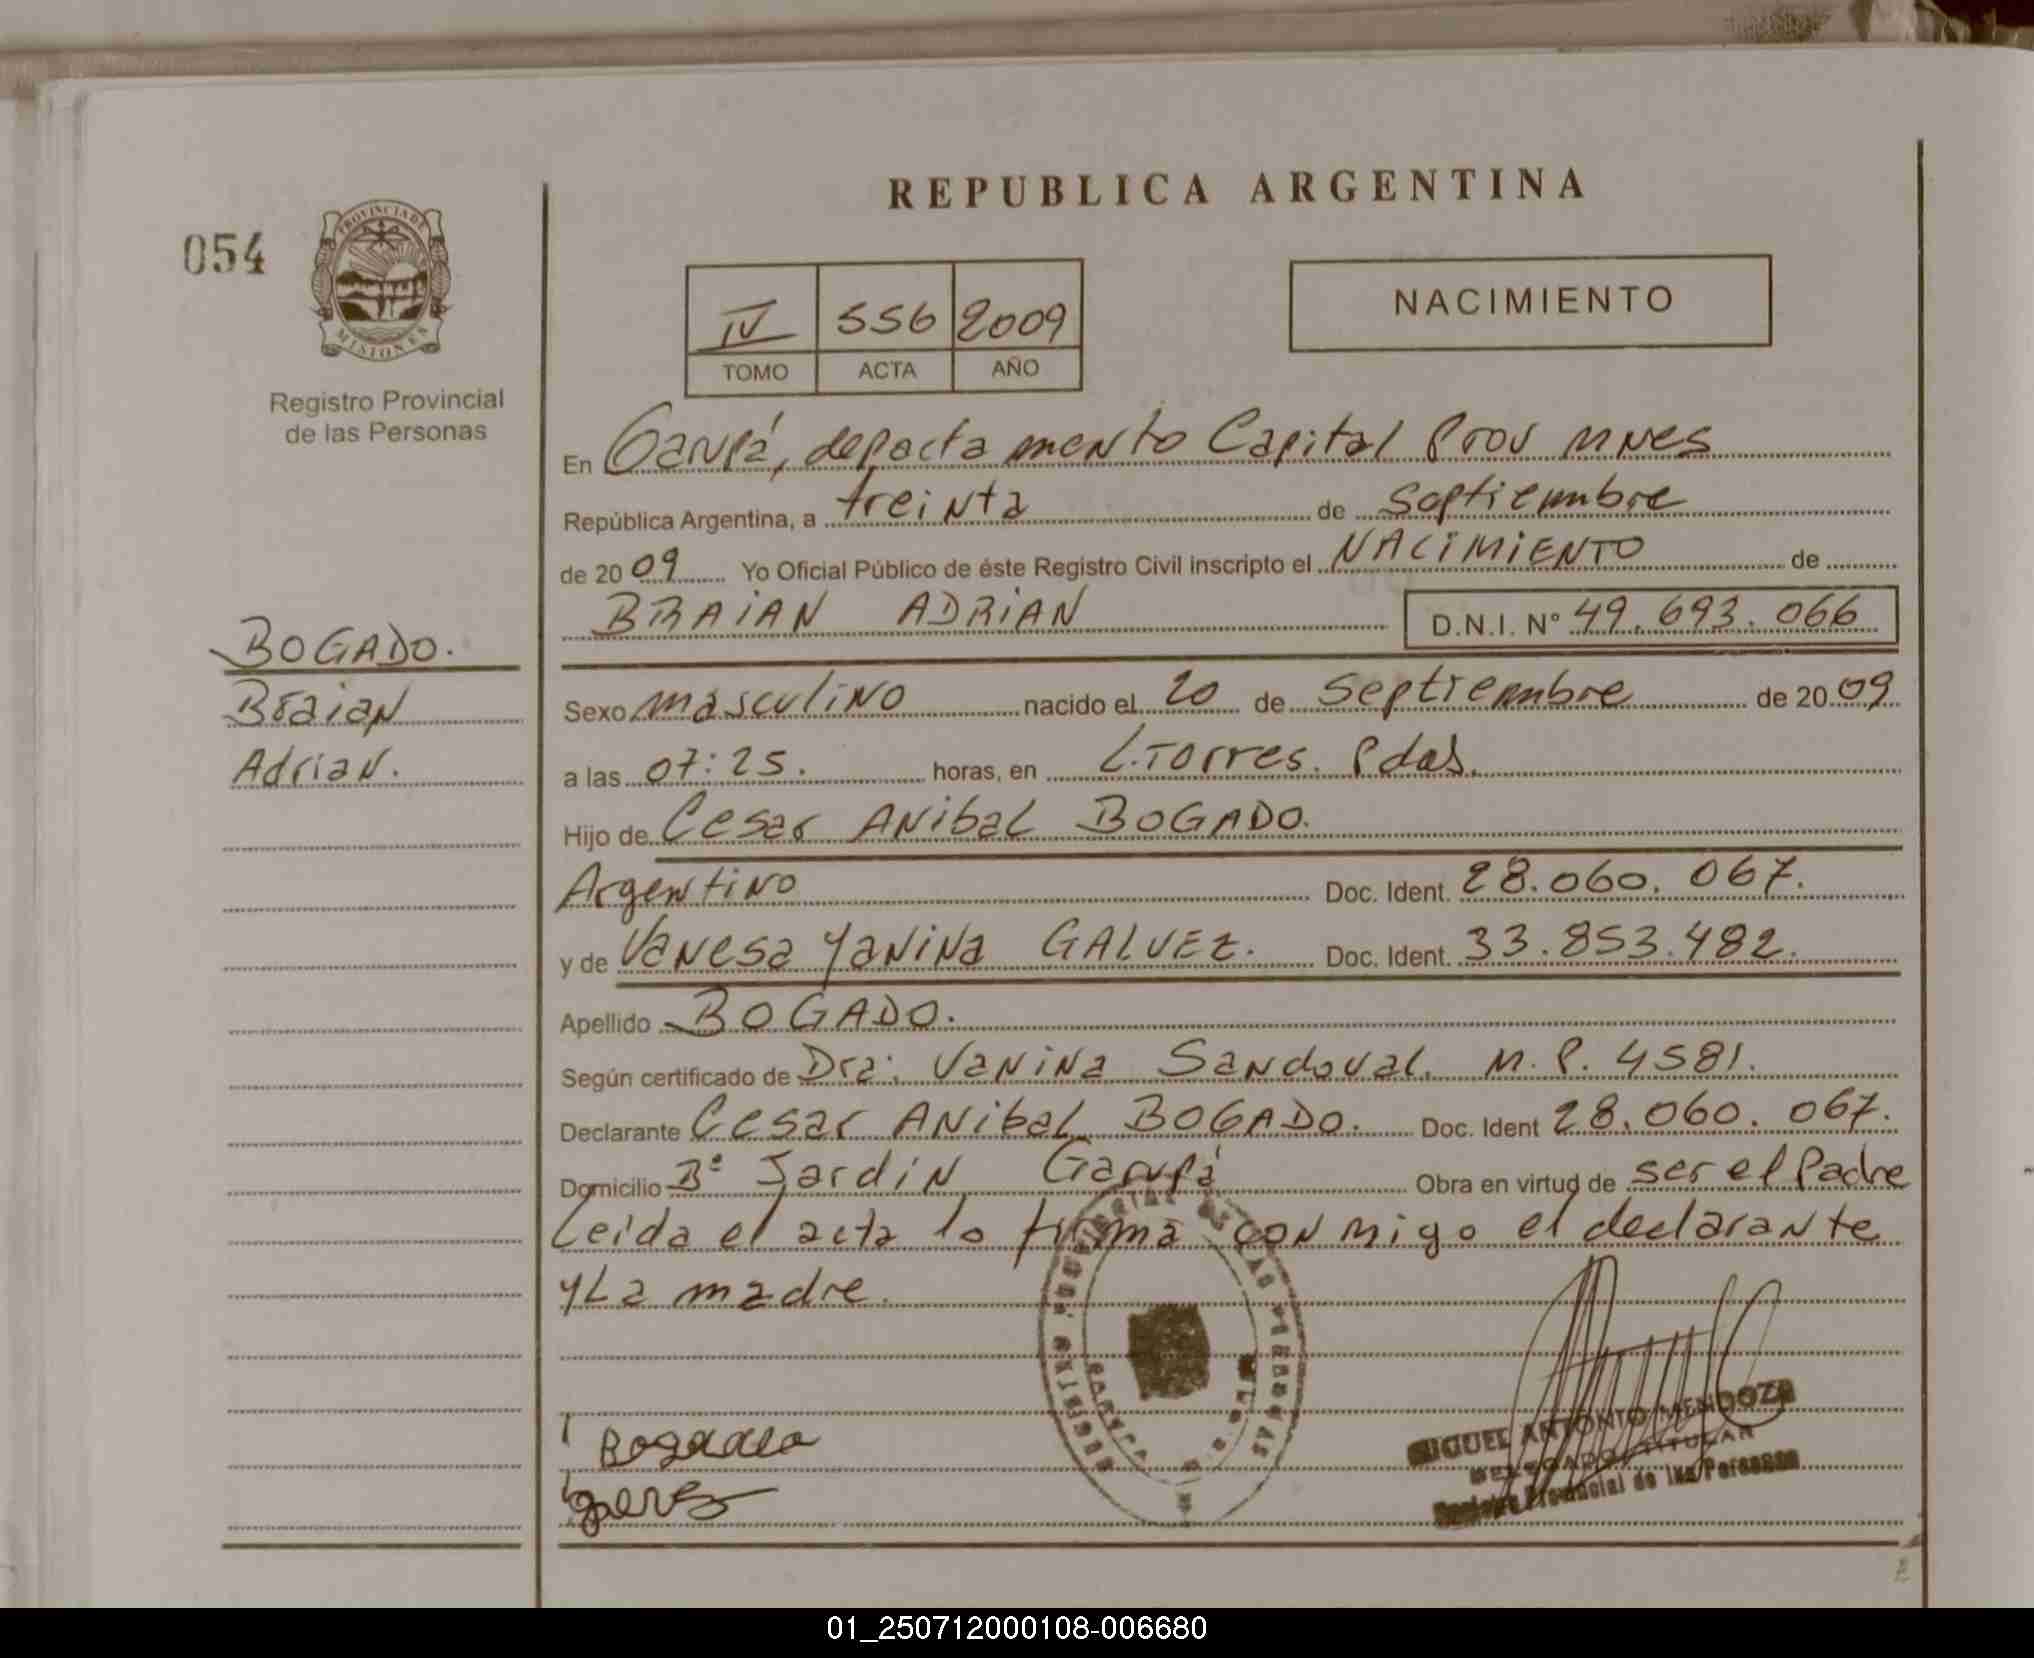 REPUBLICA ARGENTINA
054
PROVINCIA DE
MISIONES
Registro Provincial
de las Personas
IV 556 2009
TOMO ACTA AÑO
NACIMIENTO
En Garupá, departamento Capital Prov Mnes
República Argentina, a treinta de Septiembre
de 2009 Yo Oficial Público de éste Registro Civil inscripto el NACIMIENTO de
BRAIAN ADRIAN D.N.I. N° 49.693.066
BOGADO.
Braian
Adrian.
Sexo masculino nacido el 20 de septiembre de 2009
a las 07:25. horas, en L. Torres. Pdas.
Hijo de Cesar Anibal BOGADO.
Argentino Doc. Ident. 28.060.067.
y de Vanesa Yanina GALVEZ. Doc. Ident. 33.853.482.
Apellido BOGADO.
Según certificado de Dra: Vanina Sandoval. M.P. 4581.
Declarante Cesar Anibal BOGADO. Doc. Ident 28.060.067.
Domicilio B° Jardin Garupá Obra en virtud de ser el Padre
Leida el acta lo firma conmigo el declarante
y La madre.
Bogado
MIGUEL ANTONIO MENDOZA
DELEGADO TITULAR
Registro Provincial de las Personas
01_250712000108-006680